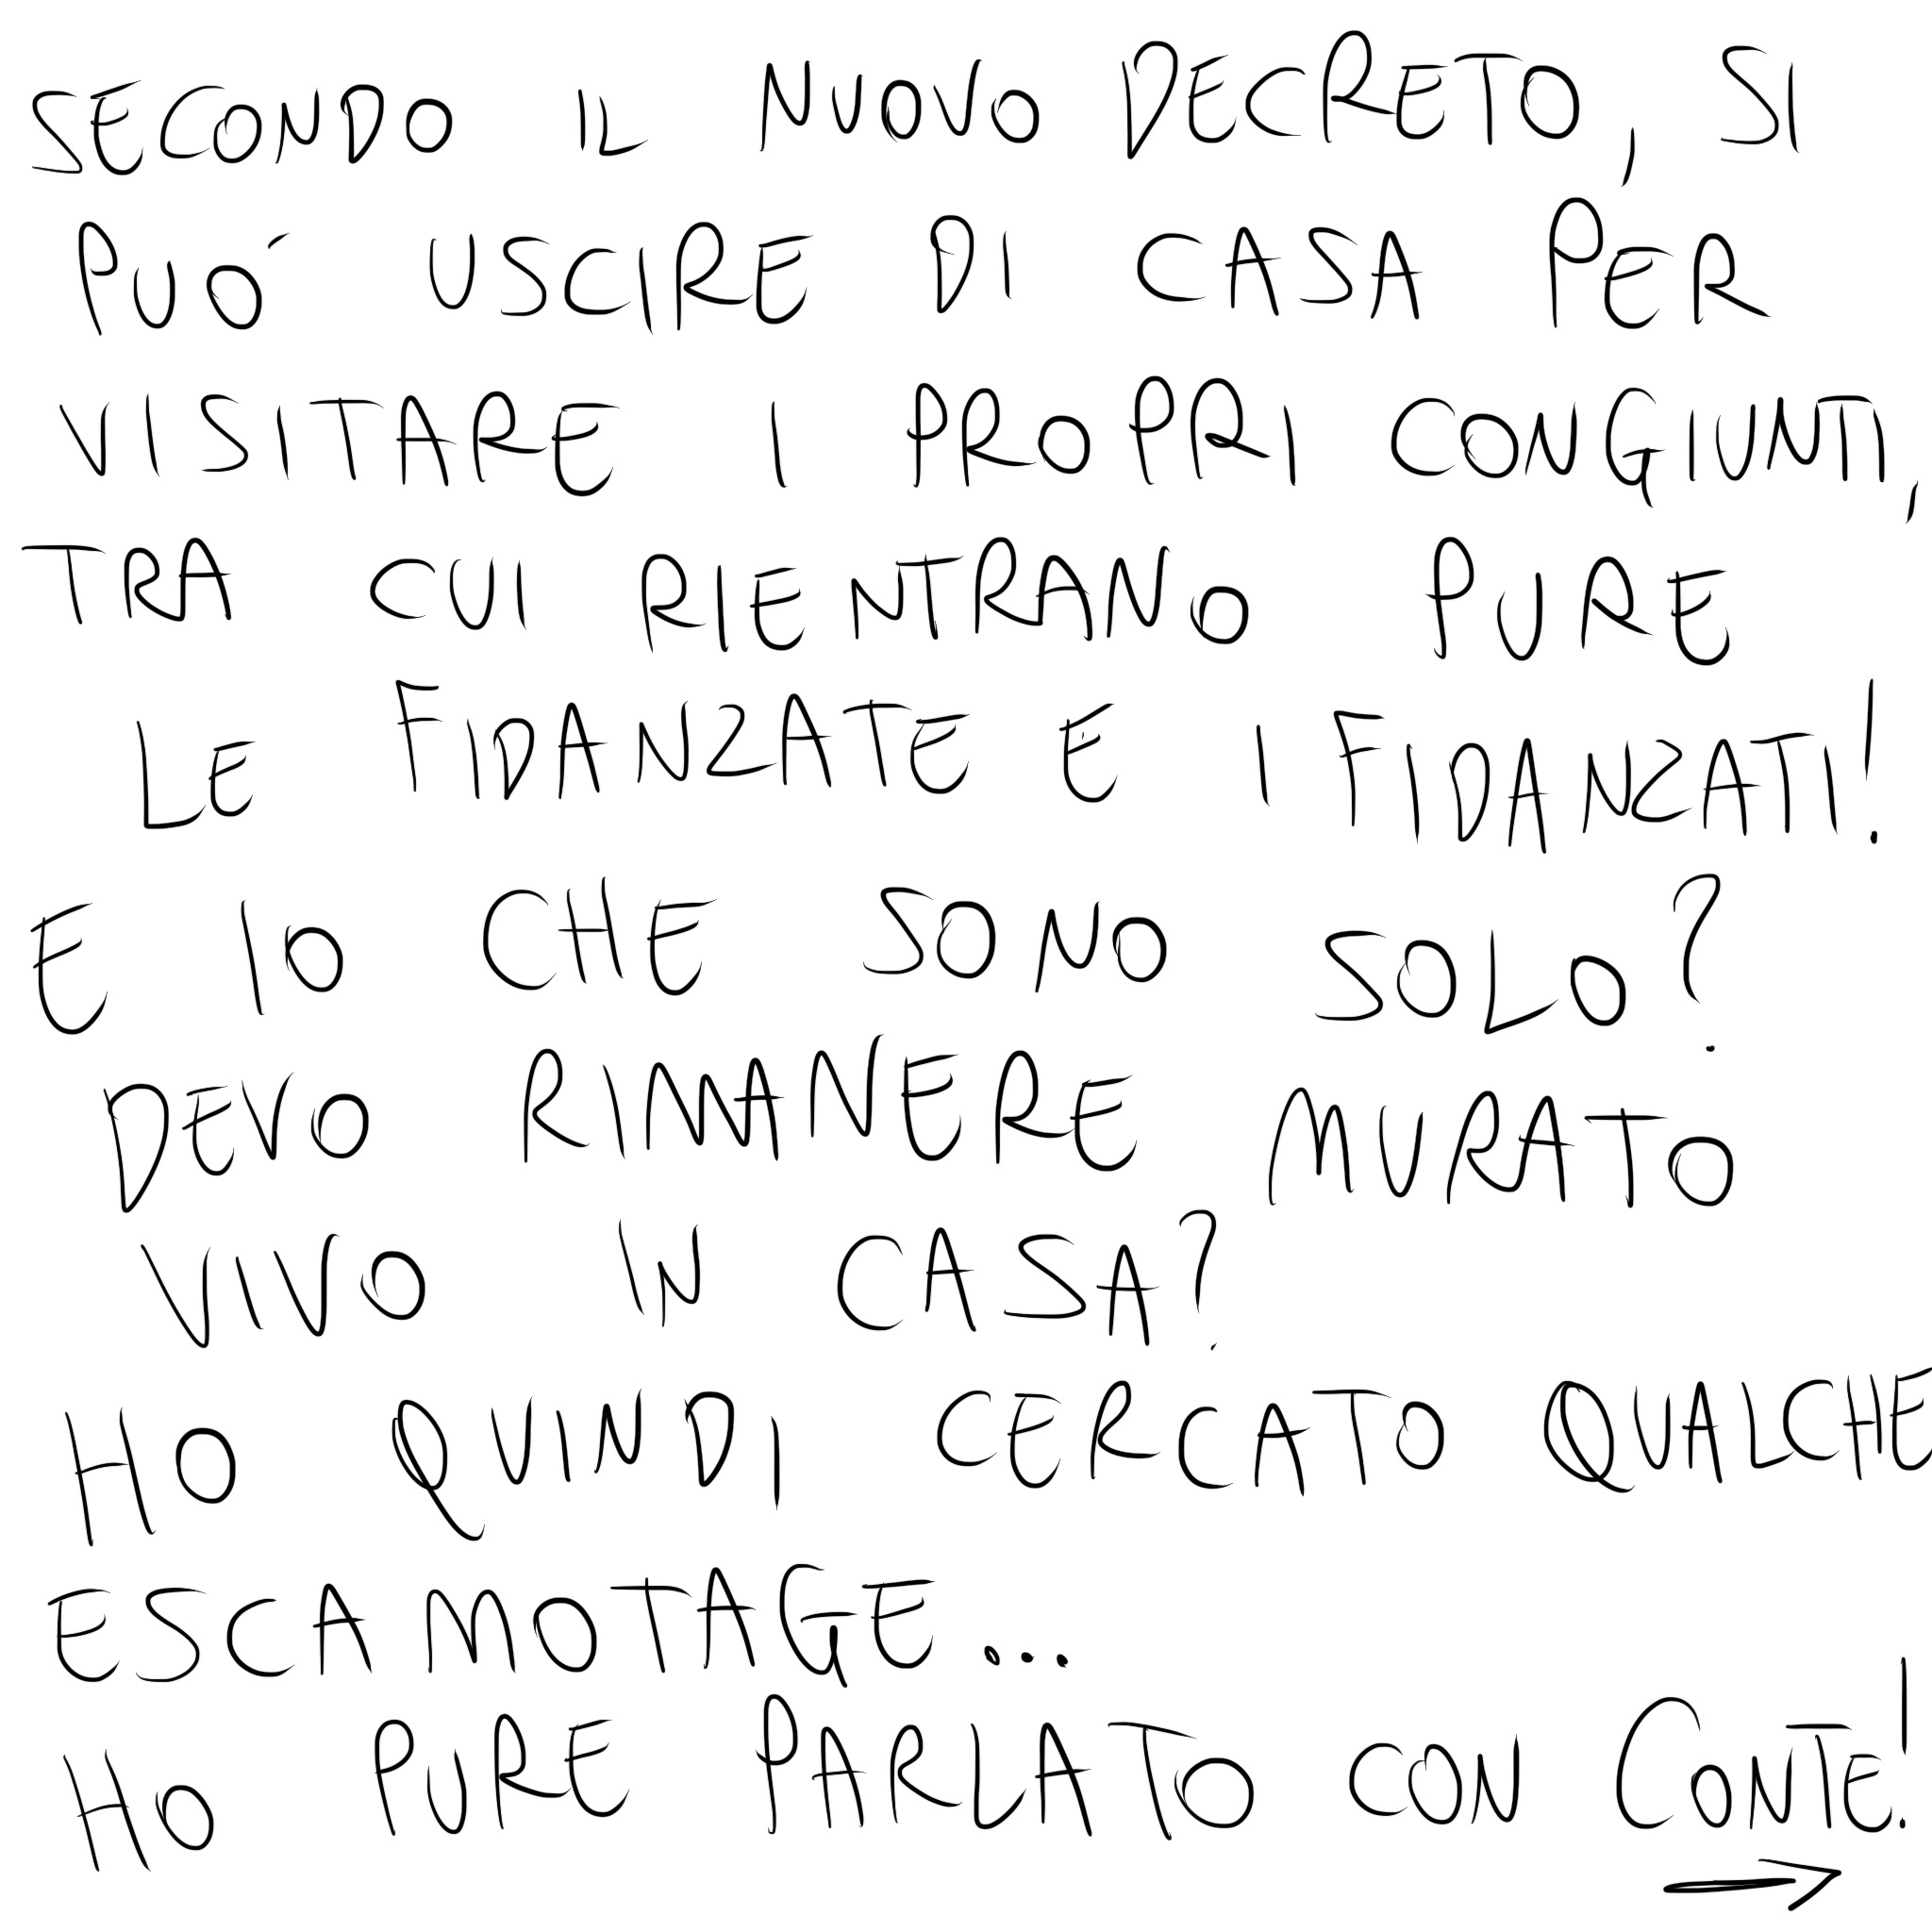 SECONDO IL NUOVO DECRETO, SI
PUÓ USCIRE DI CASA PER
VISITARE I PROPRI CONGIUNTI,
TRA CUI RIENTRANO PURE
LE FIDANZATE E I FIDANZATI!
E IO CHE SONO SOLO?
DEVO RIMANERE MURATO
VIVO IN CASA?
HO QUINDI CERCATO QUALCHE
ESCAMOTAGE...
HO PURE PARLATO CON CONTE!